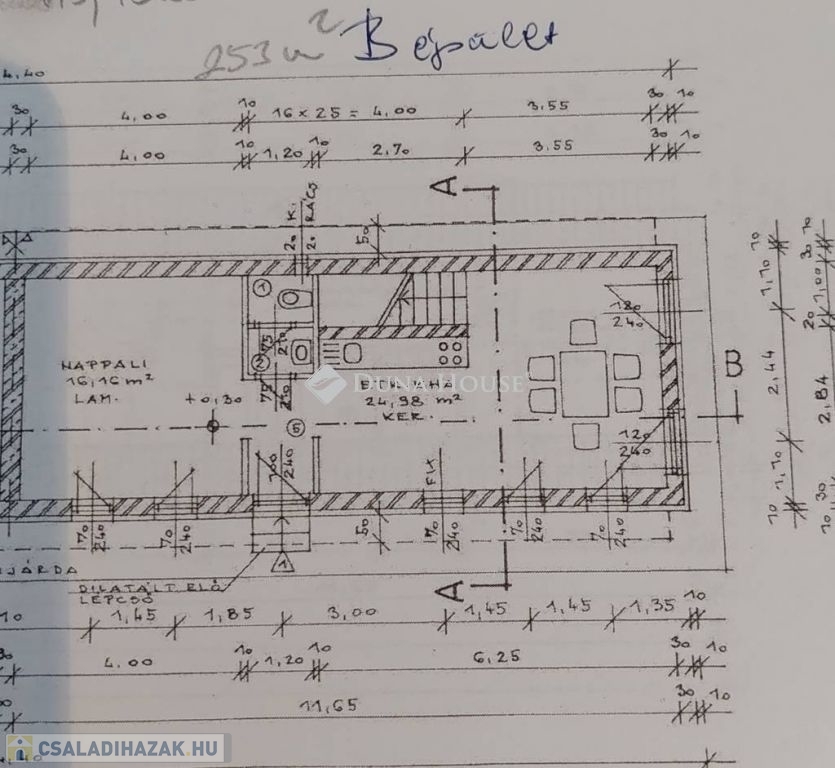 253 m² B épület
4,40
30 4,00 10 16 x 25 = 4,00 3,55 30 10
30 4,00 10 1,20 10 2,70 3,55 30 10
A
20 K.
20 RÁCS
50
1
75
210
2
75
210
NAPPALI
16,16 m²
LAM.
+0,30
DUNA HOUSE
24,98 m²
KER.
5
100
240
FIX
180
240
120
240
B
70
240
70
240
50
70
240
70
240
70
240
JÁRDA
1
DILATÁLT ELŐ
LÉPCSŐ
A
10 1,45 1,85 3,00 1,45 1,45 1,35 10
30 4,00 10 1,20 10 6,25 30 10
11,65 30 10
10 1,10 2,44 1,10 10
10 30 1,00 20 2,84 30 10
CSALADIHAZAK.HU